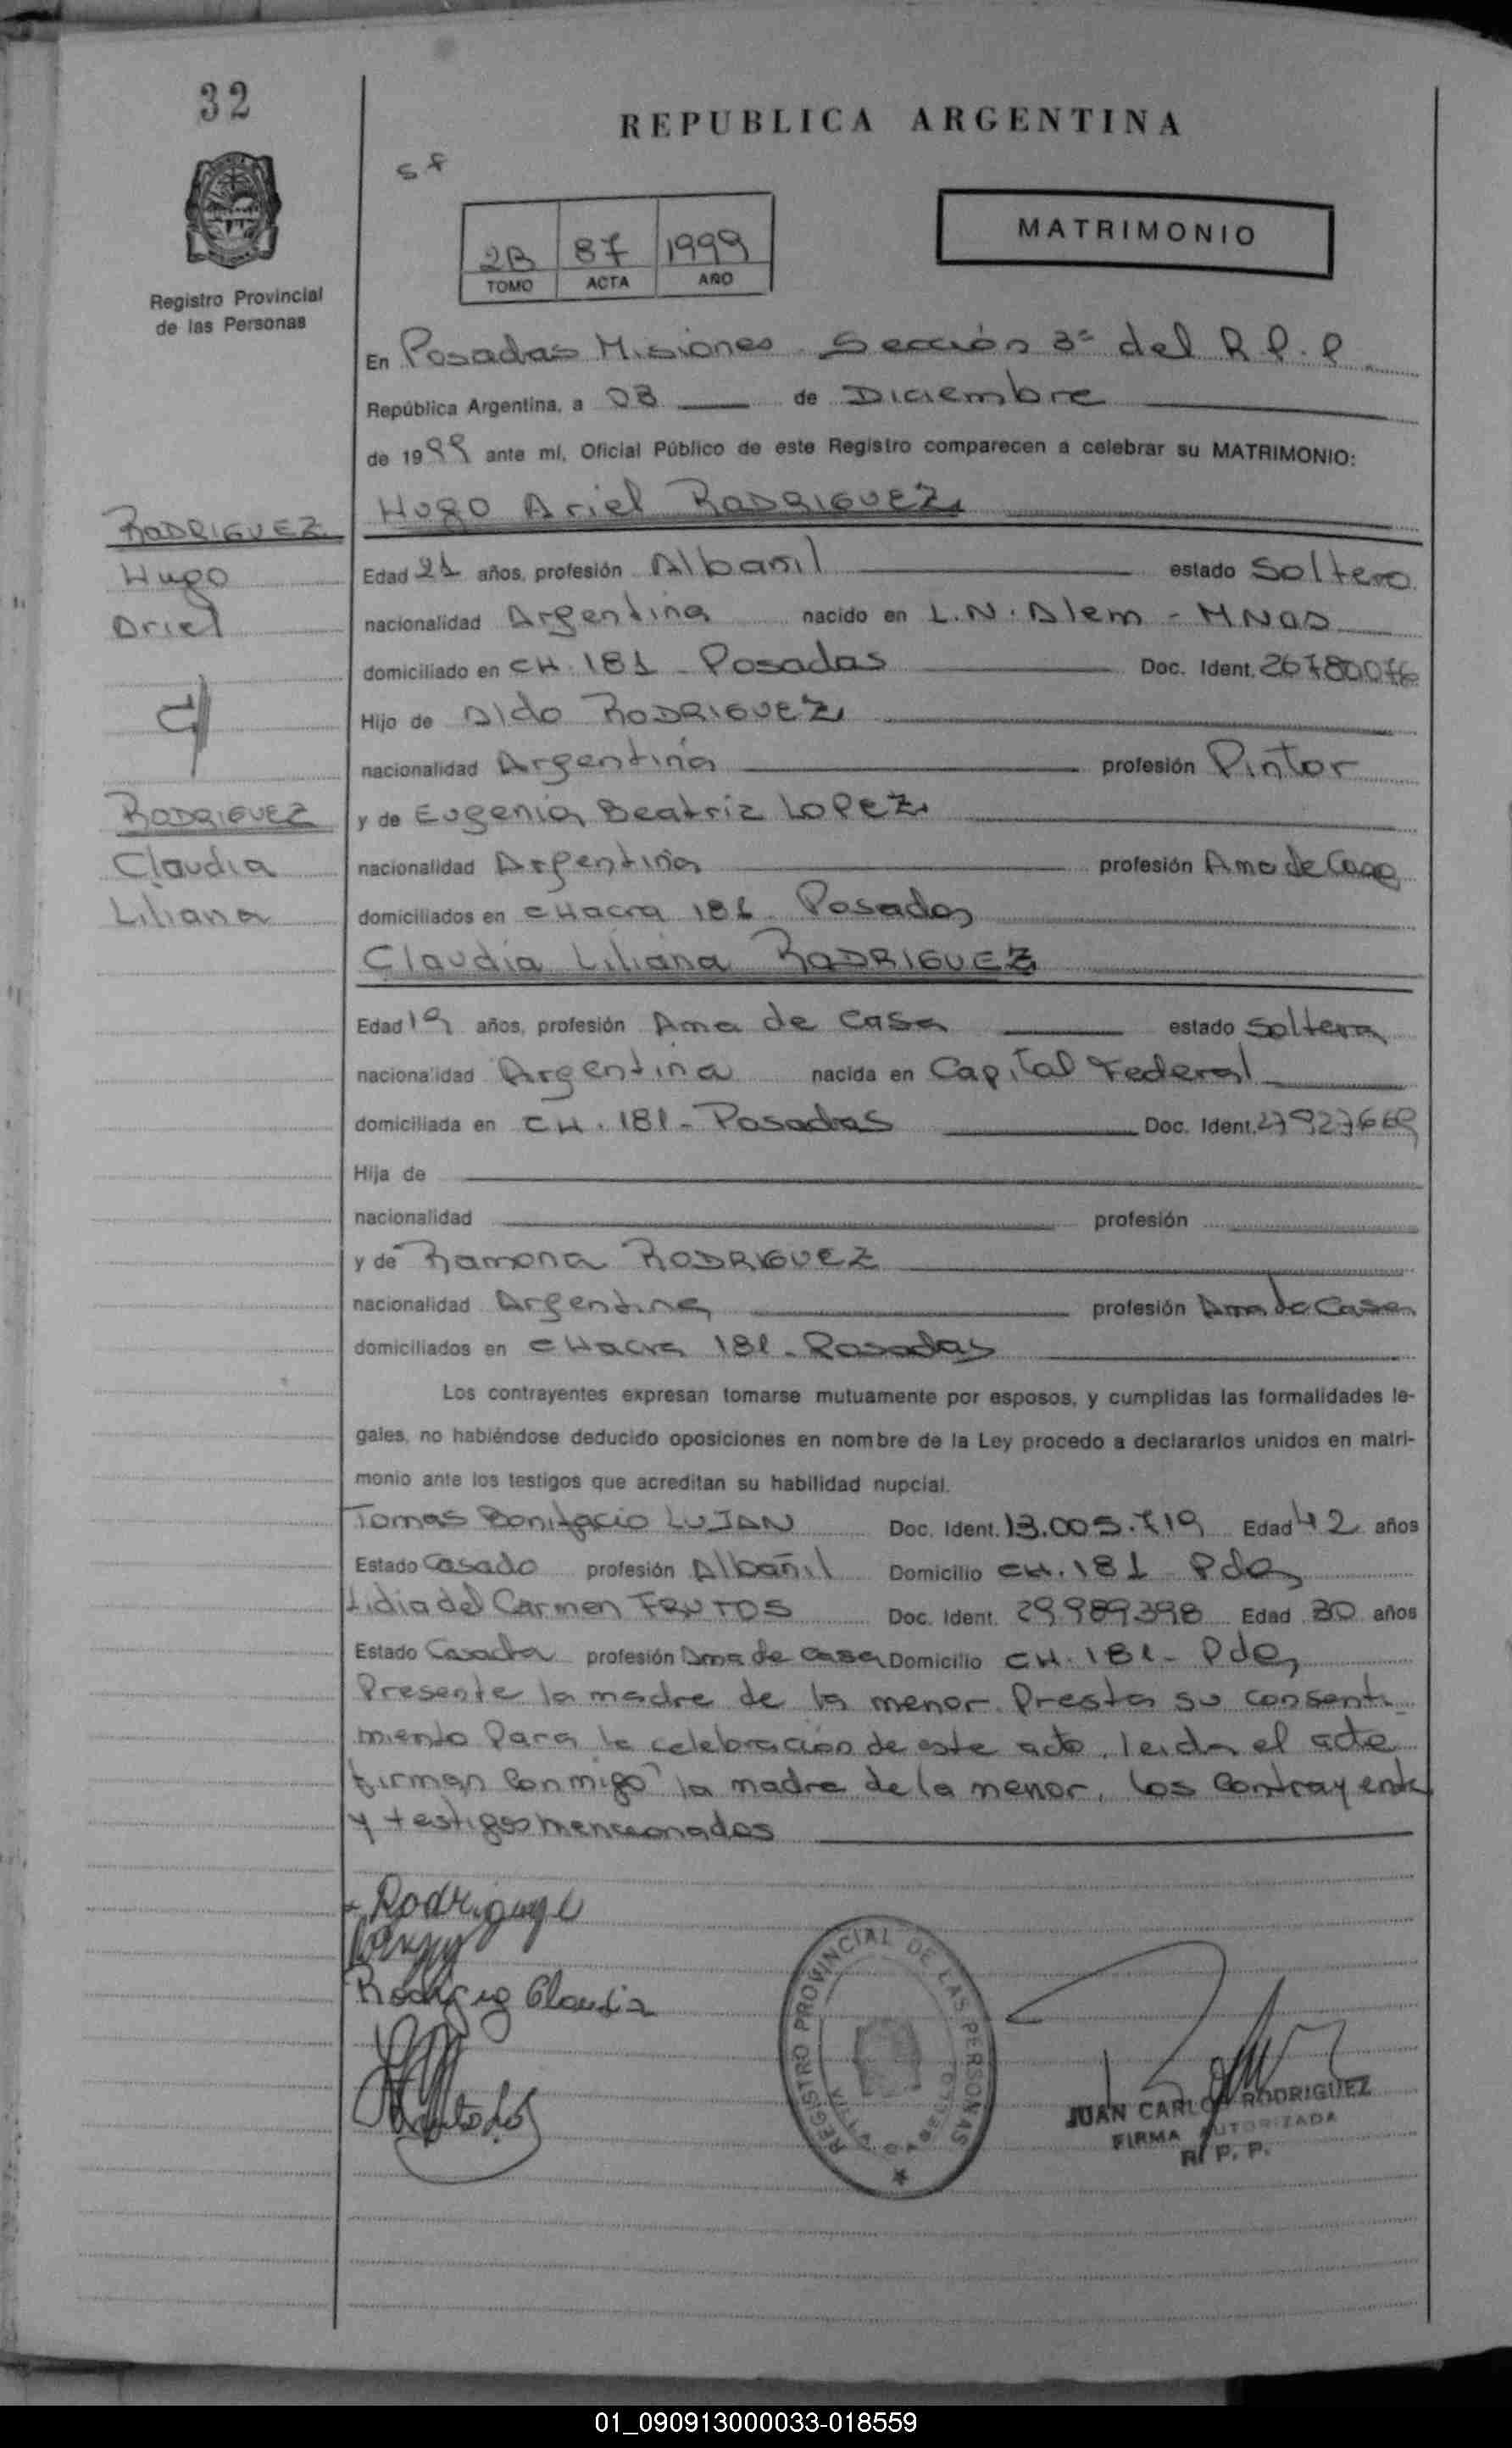 32
REPUBLICA ARGENTINA
Registro Provincial
de las Personas
2B 87 1999
TOMO ACTA AÑO
MATRIMONIO
En Posadas Misiones Sección 3ª del R.P.P
República Argentina, a 03 de Diciembre
de 1999 ante mí, Oficial Público de este Registro comparecen a celebrar su MATRIMONIO:
Hugo Ariel RODRIGUEZ
RODRIGUEZ
Hugo
Ariel
Edad 21 años, profesión Albañil estado Soltero
nacionalidad Argentina nacido en L.N. Alem - MNES
domiciliado en CH. 181 - Posadas Doc. Ident.
Hijo de Aldo RODRIGUEZ
nacionalidad Argentina profesión Pintor
y de Eugenia Beatriz LOPEZ
nacionalidad Argentina profesión Ama de Casa
domiciliados en CHacra 181 Posadas
RODRIGUEZ
Claudia
Liliana
Claudia Liliana RODRIGUEZ
Edad 19 años, profesión Ama de casa estado Soltera
nacionalidad Argentina nacida en Capital Federal
domiciliada en CH. 181 - Posadas Doc. Ident. 27927669
Hija de
nacionalidad profesión
y de Ramona RODRIGUEZ
nacionalidad Argentina profesión Ama de Casa
domiciliados en CHacra 181 - Posadas
Los contrayentes expresan tomarse mutuamente por esposos, y cumplidas las formalidades le-
gales, no habiéndose deducido oposiciones en nombre de la Ley procedo a declararlos unidos en matri-
monio ante los testigos que acreditan su habilidad nupcial.
Tomas Bonifacio LUJAN Doc. Ident. 13.005.719 Edad 42 años
Estado Casado profesión Albañil Domicilio CH. 181 - Pdas
Lidia del Carmen FRUTOS Doc. Ident. 29989398 Edad 30 años
Estado Casada profesión Ama de casa Domicilio CH. 181 - Pdas
Presente la madre de la menor. Presta su consenti-
miento para la celebración de este acto, leida el acta
firman conmigo la madre de la menor, los contrayente
y testigos mencionados
Rodriguez
Rodrigez Claudia
REGISTRO PROVINCIAL DE LAS PERSONAS
JUAN CARLOS RODRIGUEZ
FIRMA AUTORIZADA
R. P. P.
01_090913000033-018559